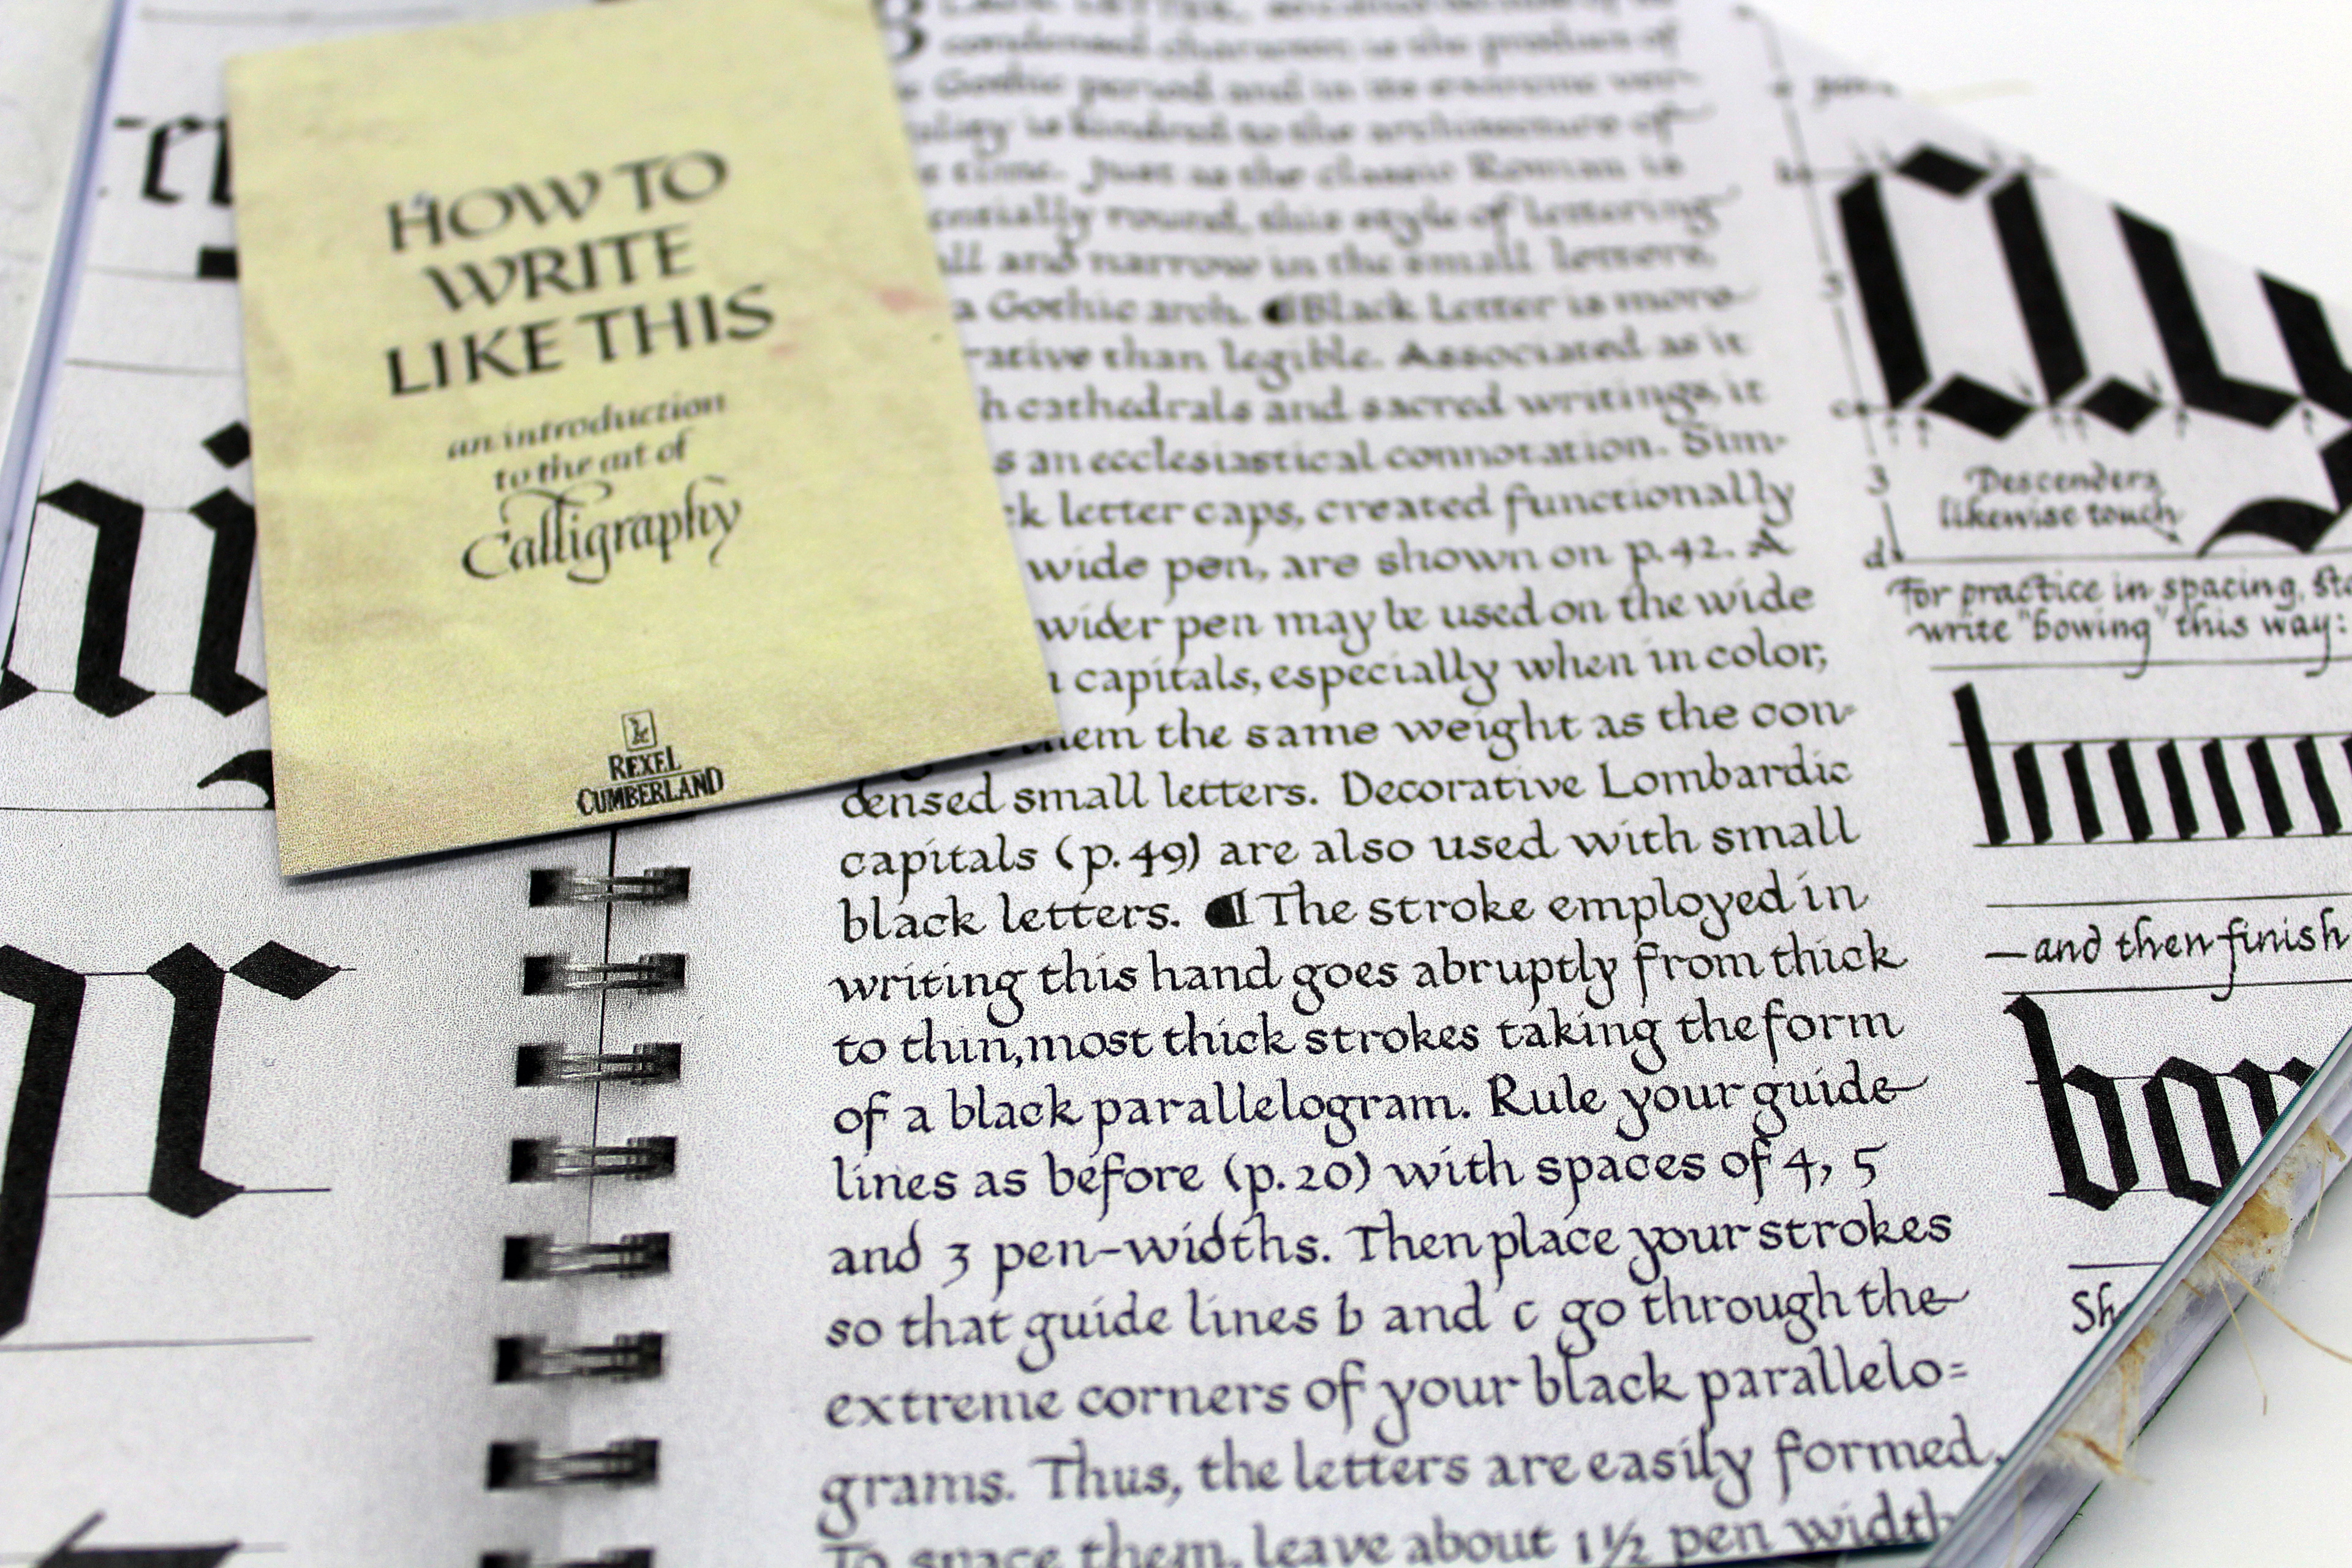 HOW TO
WRITE
LIKE THIS
an introduction
to the art of
Calligraphy
REXEL
CUMBERLAND
condensed character, is the product of
Gothic period and in its extreme ver-
is kindred to the architecture of
time. Just as the classic Roman is
round, this style of lettering
and narrow in the small letters,
a Gothic arch. ¶Black Letter is more
than legible. Associated as it
cathedrals and sacred writings, it
an ecclesiastical connotation. Sim-
letter caps, created functionally
wide pen, are shown on p. 42. A
wider pen may be used on the wide
capitals, especially when in color,
them the same weight as the con-
densed small letters. Decorative Lombardic
capitals (p. 49) are also used with small
black letters. ¶The stroke employed in
writing this hand goes abruptly from thick
to thin, most thick strokes taking the form
of a black parallelogram. Rule your guide
lines as before (p. 20) with spaces of 4, 5
and 3 pen-widths. Then place your strokes
so that guide lines b and c go through the
extreme corners of your black parallelo=
grams. Thus, the letters are easily formed.
To space them, leave about 1½ pen width
b
c
3
d
Descenders
likewise touch
For practice in spacing,
write "bowing" this way:
—and then finish